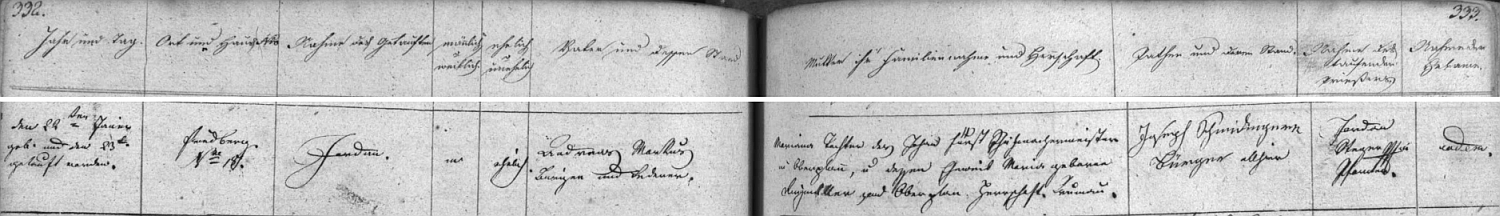 332.
333.
Jahr und Tag.
Ort und Haus Nro
Nahme des Getauften
mänlich
weiblich
ehelich
unehelich
Vater und dessen Stand
Mutter ihr Familiennahme und Herrschaft.
Pathen und deren Stand.
Nahme des
taufenden
Priesters
Nahme der
Hebame.
den 22ten
geb. und den 23t.
getauft worden.
Friedberg.
Nro
Jordan.
m
ehelich.
Andreas Markus
Bürger und Lederer.
Mariana Tochter des Johan Fürst Schuhmachermeister
v Oberplan, u dessen Eheweib Maria geborene
Oberplan. Herrschaft Krumau.
Joseph Schneidinger
Bürger allhier
Jordan
Pfarrer.
eadem.